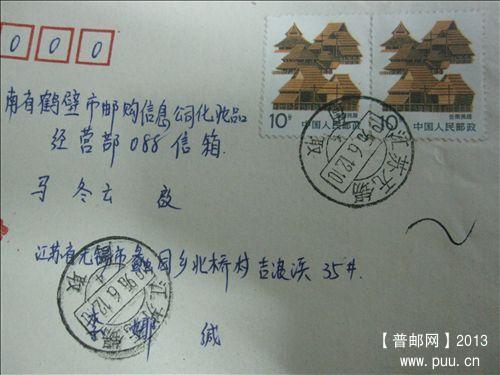 0 0 0
10分 中国人民邮政 云南民居
10分 中国人民邮政 云南民居
南省鹤壁市邮购信息公司化妆品
经营部088信箱
马冬云 启
江苏无锡
江苏省无锡市蠡园乡北桥村吉浪浜 35#.
江苏无锡
娜 缄
【普邮网】2013
www.puu.cn